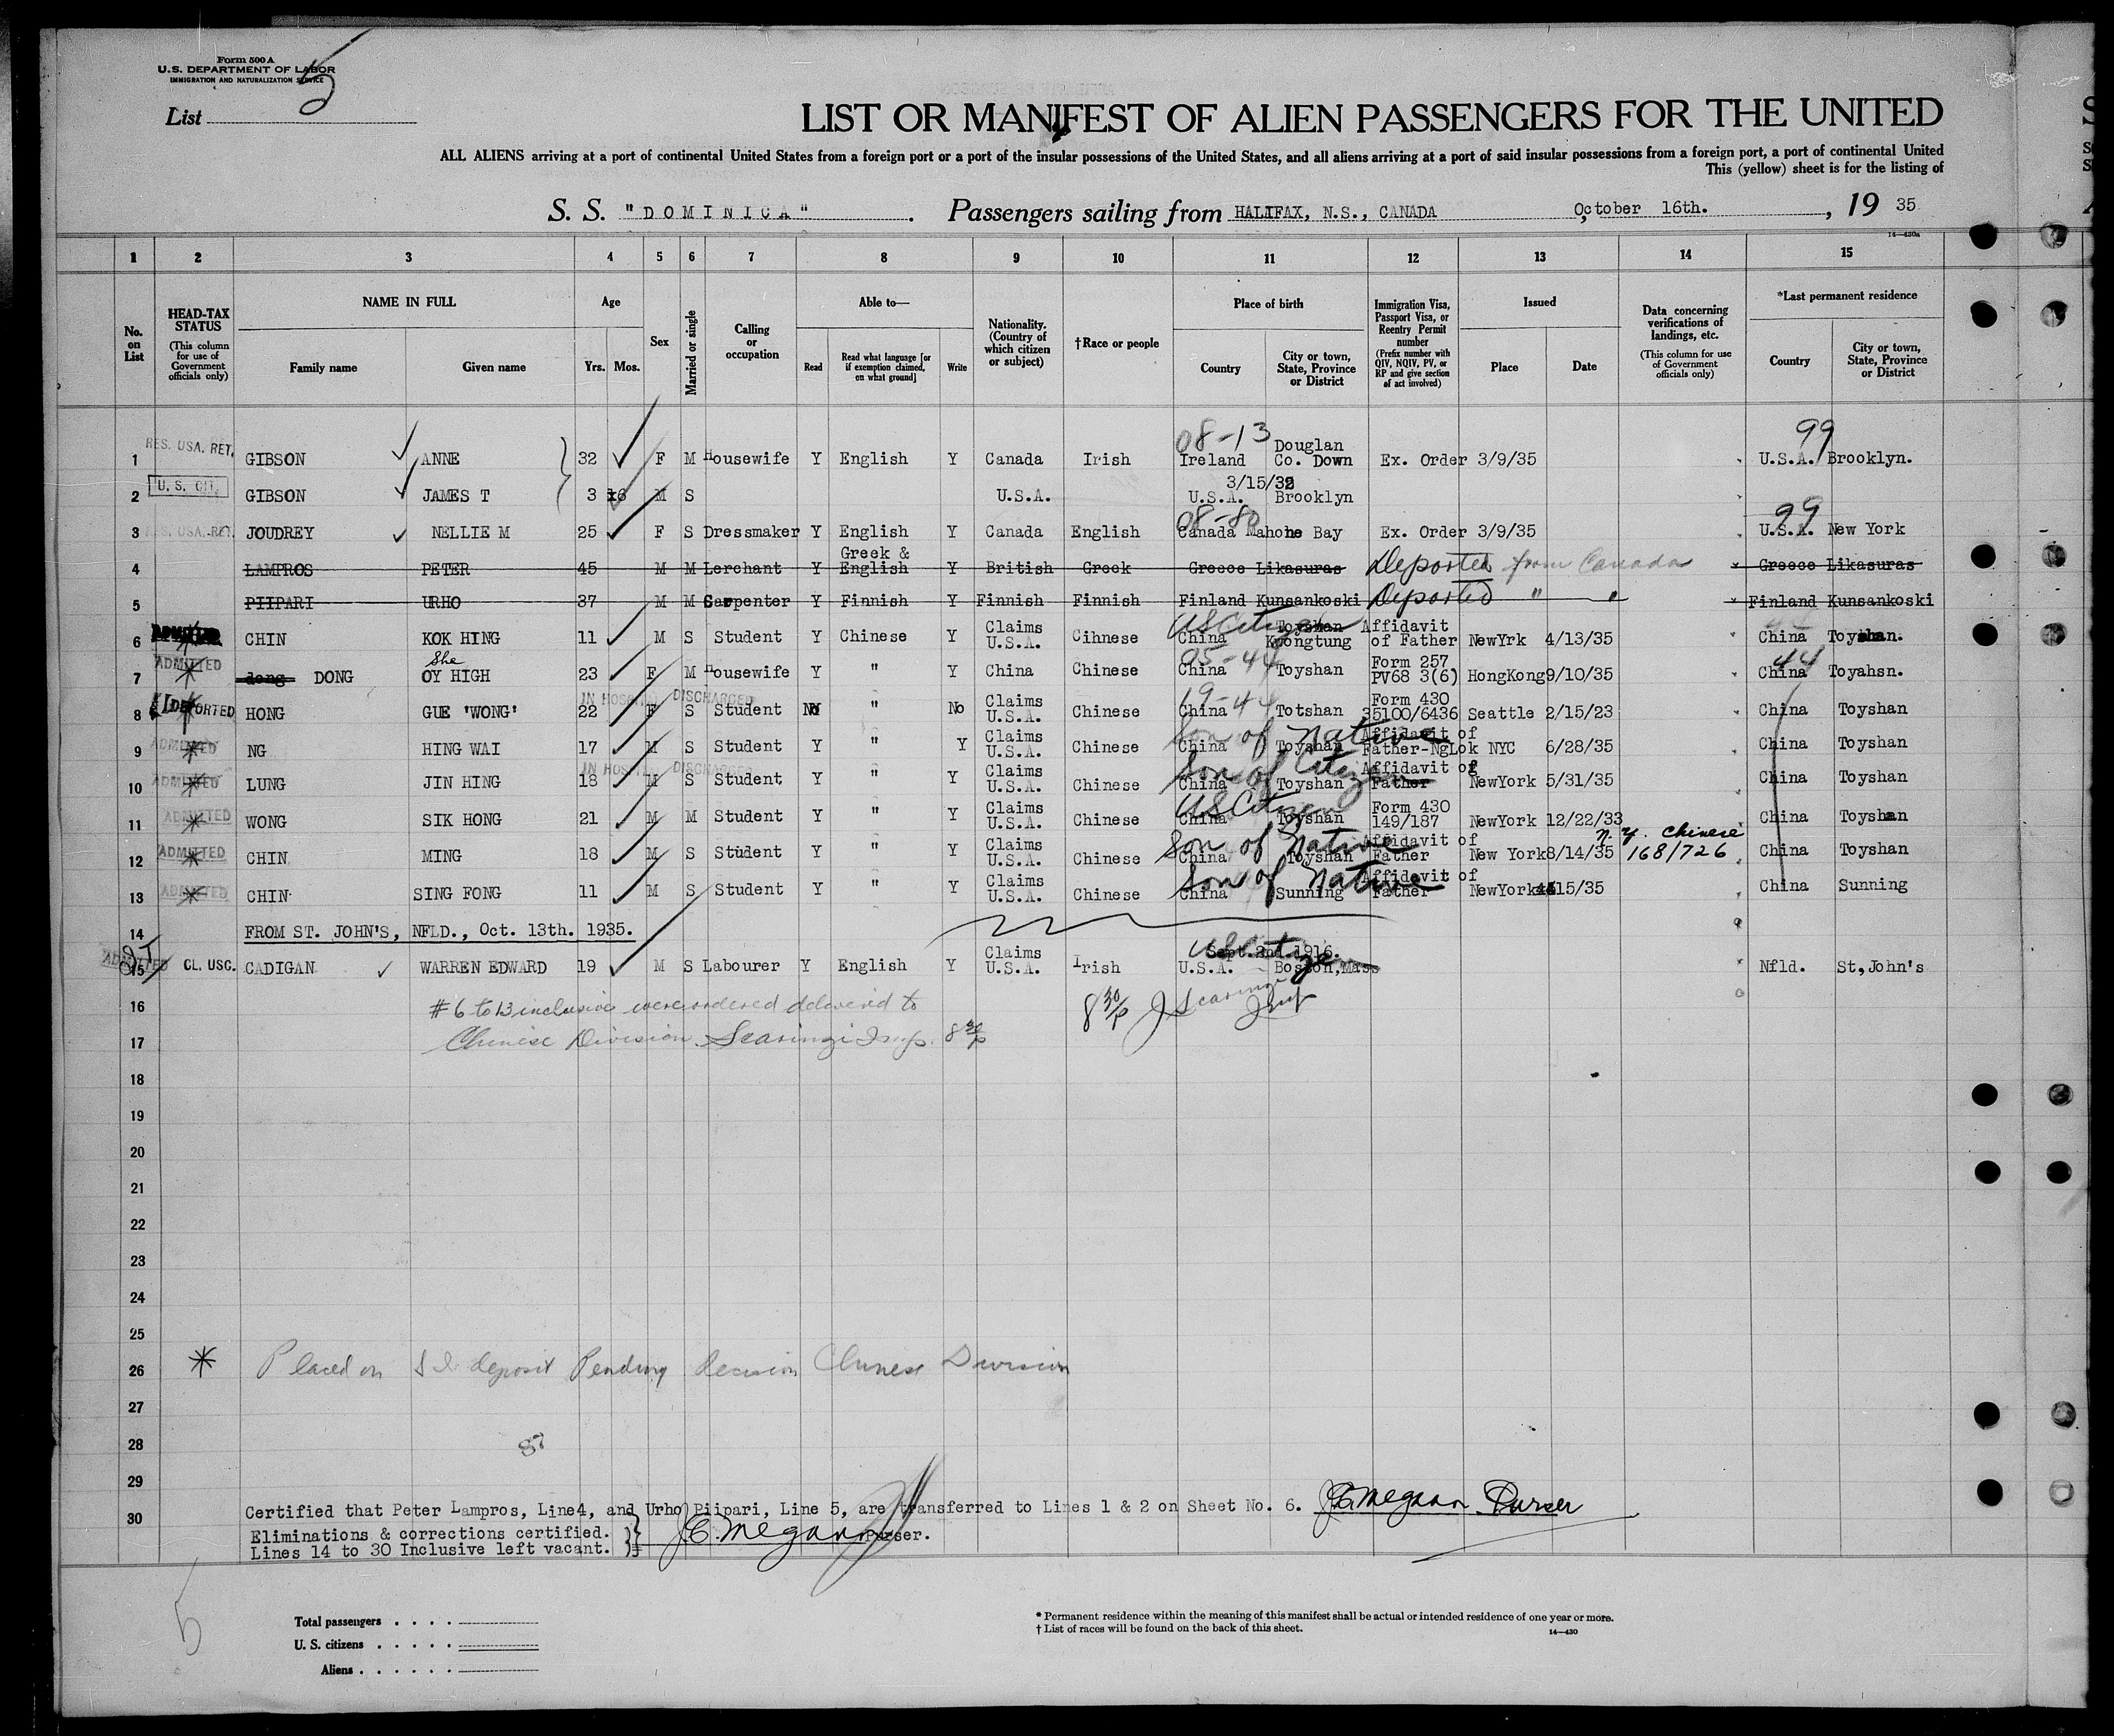 Form 500 A
U.S. DEPARTMENT OF LABOR
IMMIGRATION AND NATURALIZATION SERVICE
List 5
LIST OR MANIFEST OF ALIEN PASSENGERS FOR THE UNITED
ALL ALIENS arriving at a port of continental United States from a foreign port or a port of the insular possessions of the United States, and all aliens arriving at a port of said insular possessions from a foreign port, a port of continental United
This (yellow) sheet is for the listing of
S. S. "DOMINICA" . Passengers sailing from HALIFAX, N.S., CANADA October 16th. , 19 35
14—430a
1 2 3 4 5 6 7 8 9 10 11 12 13 14 15
No. on List
HEAD-TAX STATUS (This column for use of Government officials only)
NAME IN FULL
Family name Given name
Age
Yrs. Mos.
Sex
Married or single
Calling or occupation
Able to—
Read Read what language [or if exemption claimed, on what ground] Write
Nationality. (Country of which citizen or subject)
†Race or people
Place of birth
Country City or town, State, Province or District
Immigration Visa, Passport Visa, or Reentry Permit number (Prefix number with QIV, NQIV, PV, or RP and give section of act involved)
Issued
Place Date
Data concerning verifications of landings, etc. (This column for use of Government officials only)
*Last permanent residence
Country City or town, State, Province or District
08-13 Douglan 99
1 RES. USA. RET. GIBSON ANNE 32 F M Housewife Y English Y Canada Irish Ireland Co. Down Ex. Order 3/9/35 U.S.A. Brooklyn.
3/15/32
2 U. S. CIT. GIBSON JAMES T 3 M S U.S.A. U.S.A. Brooklyn
08-80 99
3 RES. USA. RET. JOUDREY NELLIE M 25 F S Dressmaker Y English Y Canada English Canada Mahone Bay Ex. Order 3/9/35 U.S.A. New York
4 LAMPROS PETER 45 M M Lerchant Y Greek & English Y British Greek Greece Likasuras Deported from Canada Greece Likasuras
5 PIIPARI URHO 37 M M Carpenter Y Finnish Y Finnish Finnish Finland Kunsankoski Deported " " Finland Kunsankoski
US Citizen
6 ADMITTED CHIN KOK HING 11 M S Student Y Chinese Y Claims U.S.A. Cihnese China Toyshan Kwongtung Affidavit of Father NewYrk 4/13/35 China Toyshan.
She 05-44 44
7 ADMITTED dong DONG OY HIGH 23 F M Housewife Y " Y China Chinese China Toyshan Form 257 PV68 3(6) HongKong 9/10/35 China Toyahsn.
IN HOSPITAL DISCHARGED 19-44
8 DEPORTED HONG GUE 'WONG' 22 F S Student No " No Claims U.S.A. Chinese China Totshan Form 430 35100/6436 Seattle 2/15/23 China Toyshan
Son of Native
9 ADMITTED NG HING WAI 17 M S Student Y " Y Claims U.S.A. Chinese China Toyshan Affidavit of Father-NgLok NYC 6/28/35 China Toyshan
IN HOSPITAL DISCHARGED Son of Citizen
10 ADMITTED LUNG JIN HING 18 M S Student Y " Y Claims U.S.A. Chinese China Toyshan Affidavit of Father NewYork 5/31/35 China Toyshan
US Citizen
11 ADMITTED WONG SIK HONG 21 M M Student Y " Y Claims U.S.A. Chinese China Toyshan Form 430 149/187 NewYork 12/22/33 China Toyshan
Son of Native N.Y. Chinese
12 ADMITTED CHIN MING 18 M S Student Y " Y Claims U.S.A. Chinese China Toyshan Affidavit of Father New York 8/14/35 168/726 China Toyshan
Son of Native
13 ADMITTED CHIN SING FONG 11 M S Student Y " Y Claims U.S.A. Chinese China Sunning Affidavit of Father NewYork 15/35 China Sunning
14 FROM ST. JOHN'S, NFLD., Oct. 13th. 1935.
US Citizen Sept. 2nd. 1916.
15 ADMITTED CL. USC. CADIGAN WARREN EDWARD 19 M S Labourer Y English Y Claims U.S.A. Irish U.S.A. Boston, Mass Nfld. St, John's
16 #6 to 13 inclusive were ordered delivered to 8 30/P J Scaringi Insp
17 Chinese Division Scaringi Insp. 8 30/P
18
19
20
21
22
23
24
25
26 * Placed on S I deposit Pending decision Chinese Division
27
28 87
29
Certified that Peter Lampros, Line4, and Urho Piipari, Line 5, are transferred to Lines 1 & 2 on Sheet No. 6. J.C. Megann Purser
30 Eliminations & corrections certified. J.C. Megann Purser.
Lines 14 to 30 Inclusive left vacant.
5
Total passengers
U. S. citizens
Aliens
* Permanent residence within the meaning of this manifest shall be actual or intended residence of one year or more.
† List of races will be found on the back of this sheet.
14—430